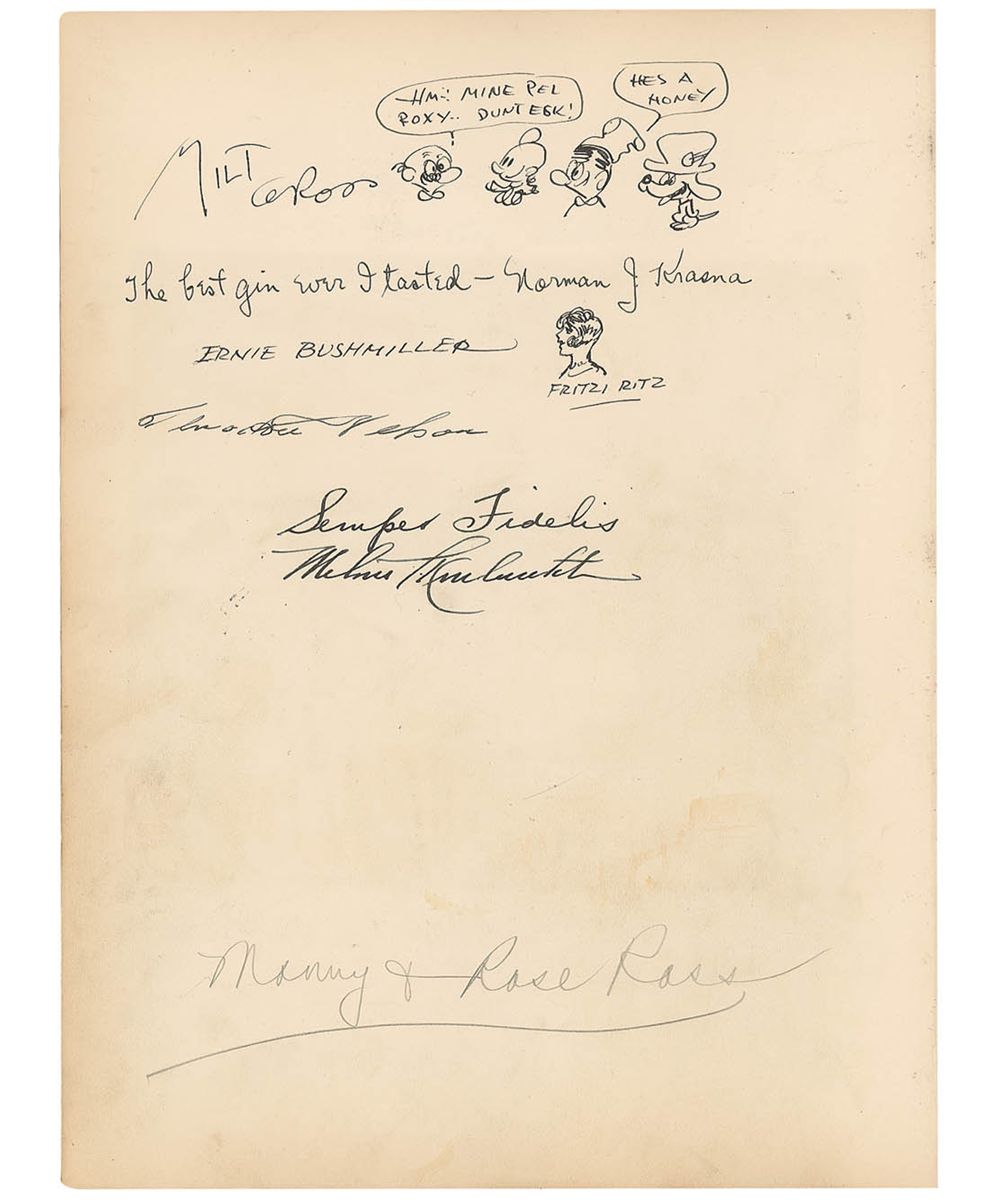 HM:! MINE PEL
ROXY.. DUNT ESK!
HES A
HONEY
MILT GROSS
The best gin ever I tasted — Norman J Krasna
ERNIE BUSHMILLER
FRITZI RITZ
Theodore Nelson
Semper Fidelis
Manny & Rose Ross